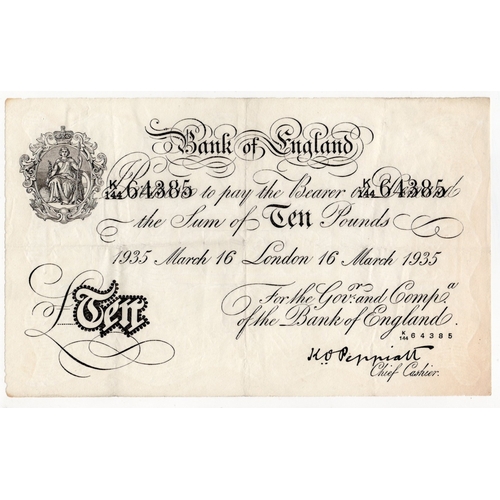 Bank of England
K/144 64385 to pay the Bearer on Demand K/144 64385
the Sum of Ten Pounds
1935 March 16 London 16 March 1935
For the Govr. and Compa.
of the Bank of England.
£Ten
K/144 64385
K.O. Peppiatt
Chief Cashier.